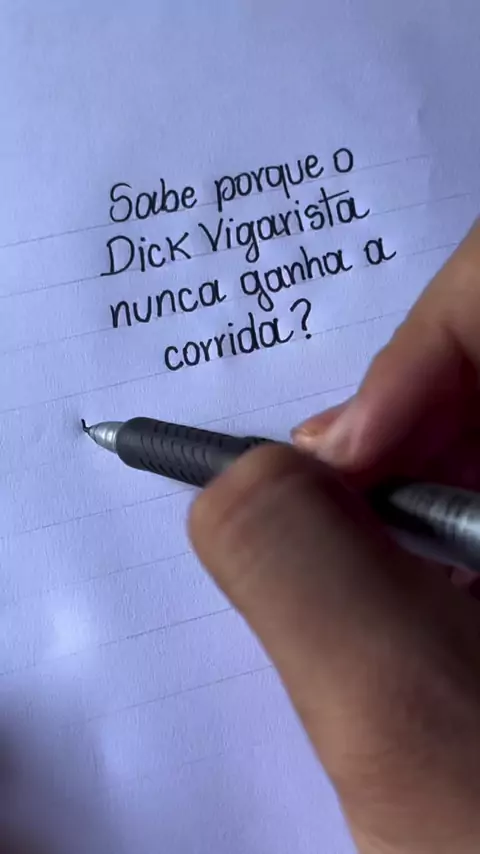 Sabe porque o
Dick Vigarista
nunca ganha a
corrida?